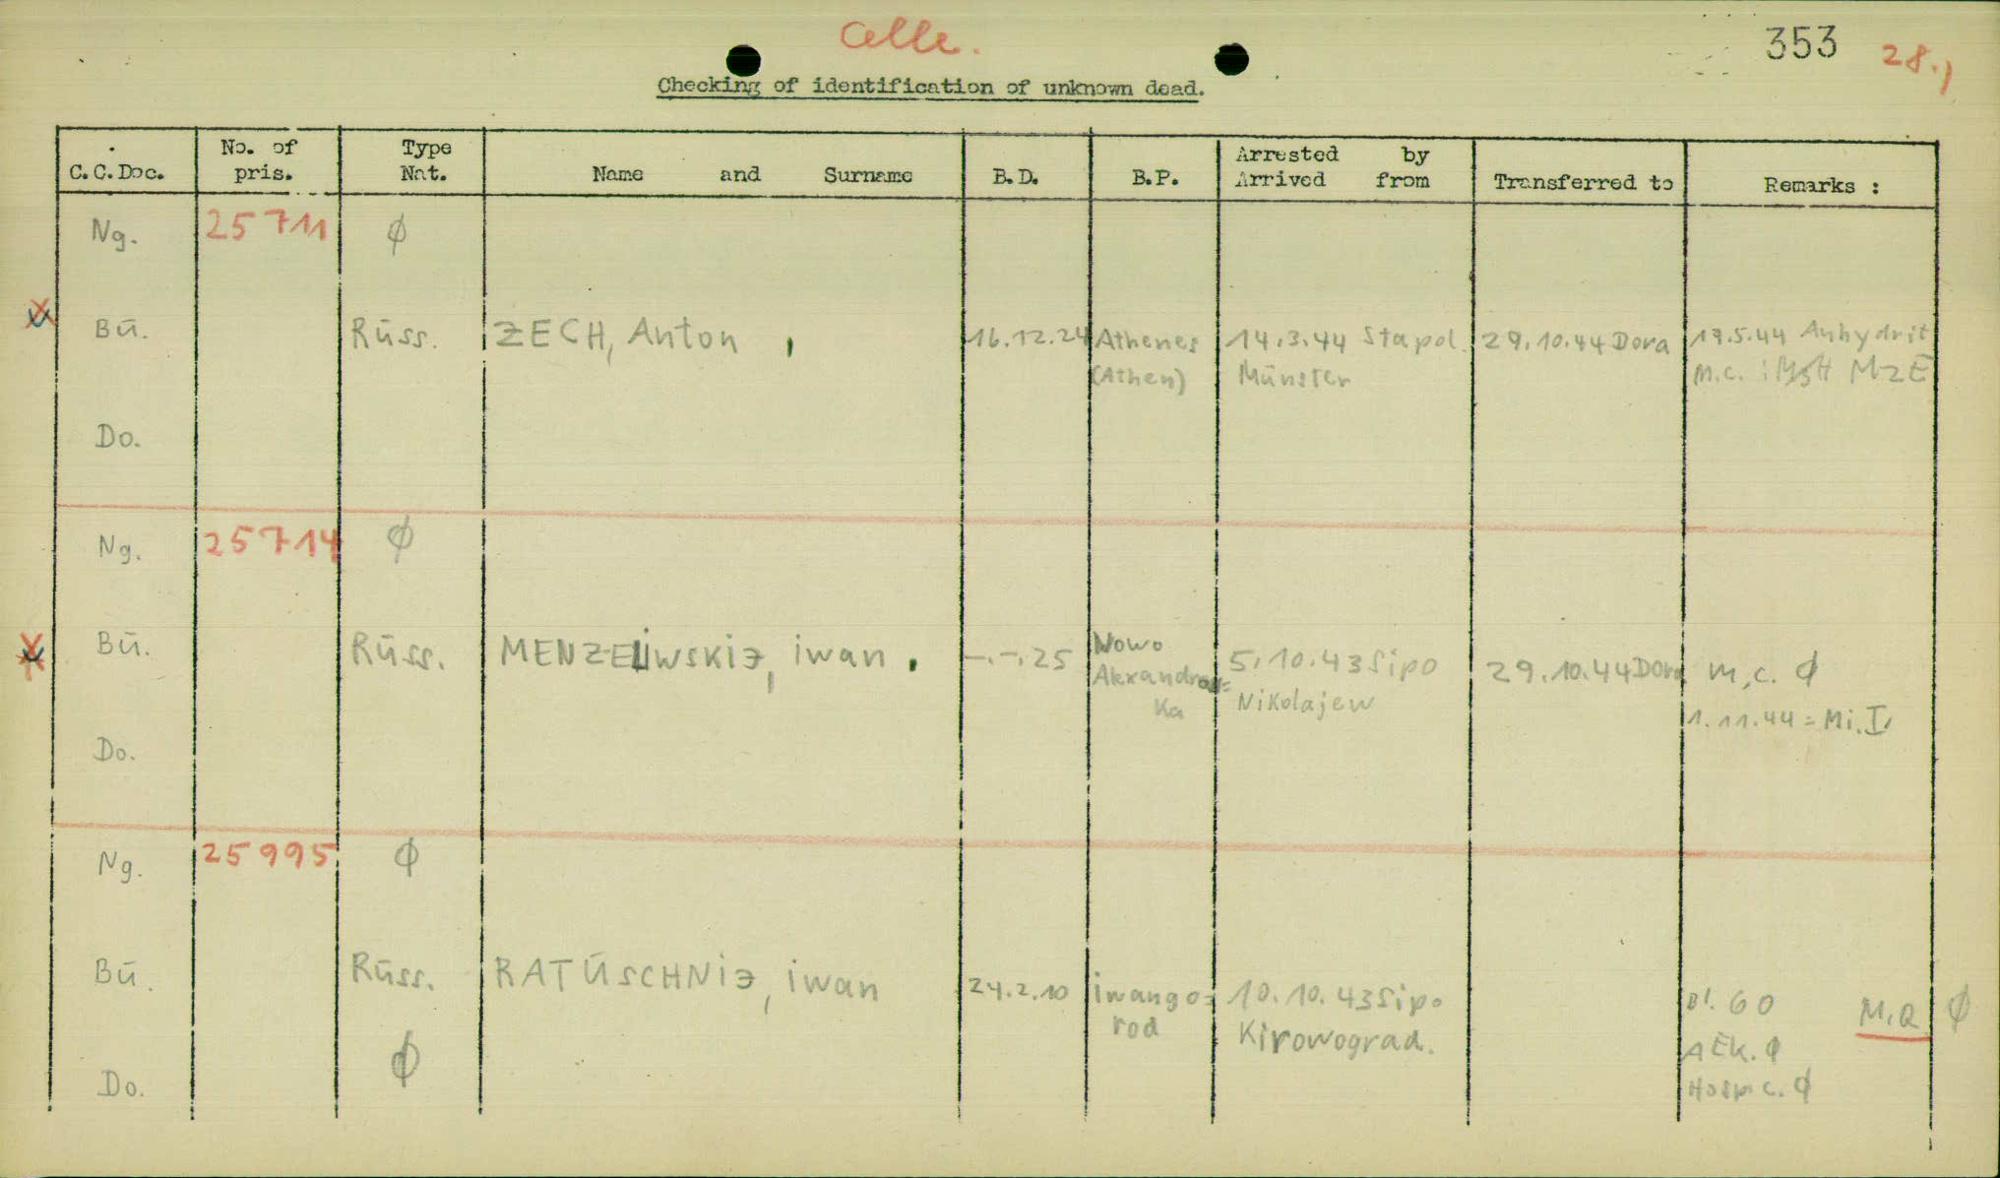 Celle.
353 28.)
Checking of identification of unknown dead.
C.C.Doc. No. of pris. Type Nat. Name and Surname B.D. B.P. Arrested by Arrived from Transferred to Remarks :
Ng. 25711 ϕ
Bū. Rūss. ZECH, Anton , 16.12.24 Athenes 14.3.44 Stapol. 29.10.44 Dora 17.5.44 Anhydrit
(Athen) Münster M.c. : MzE
Do.
Ng. 25714 ϕ
Bū. Rūss. MENZELIWSKIJ, iwan . -.-.25 Nowo 5.10.43 Sipo 29.10.44 Dora M.c. ϕ
Alexandrow=
ka Nikolajew 1.11.44 = Mi.I,
Do.
Ng. 25995 ϕ
Bū. Rūss. RATŪSCHNIJ, iwan 24.2.10 iwango= 10.10.43 Sipo Bl. 60 M.Q ϕ
rod Kirowograd. AEK. ϕ
Do. ϕ Hosp c. ϕ